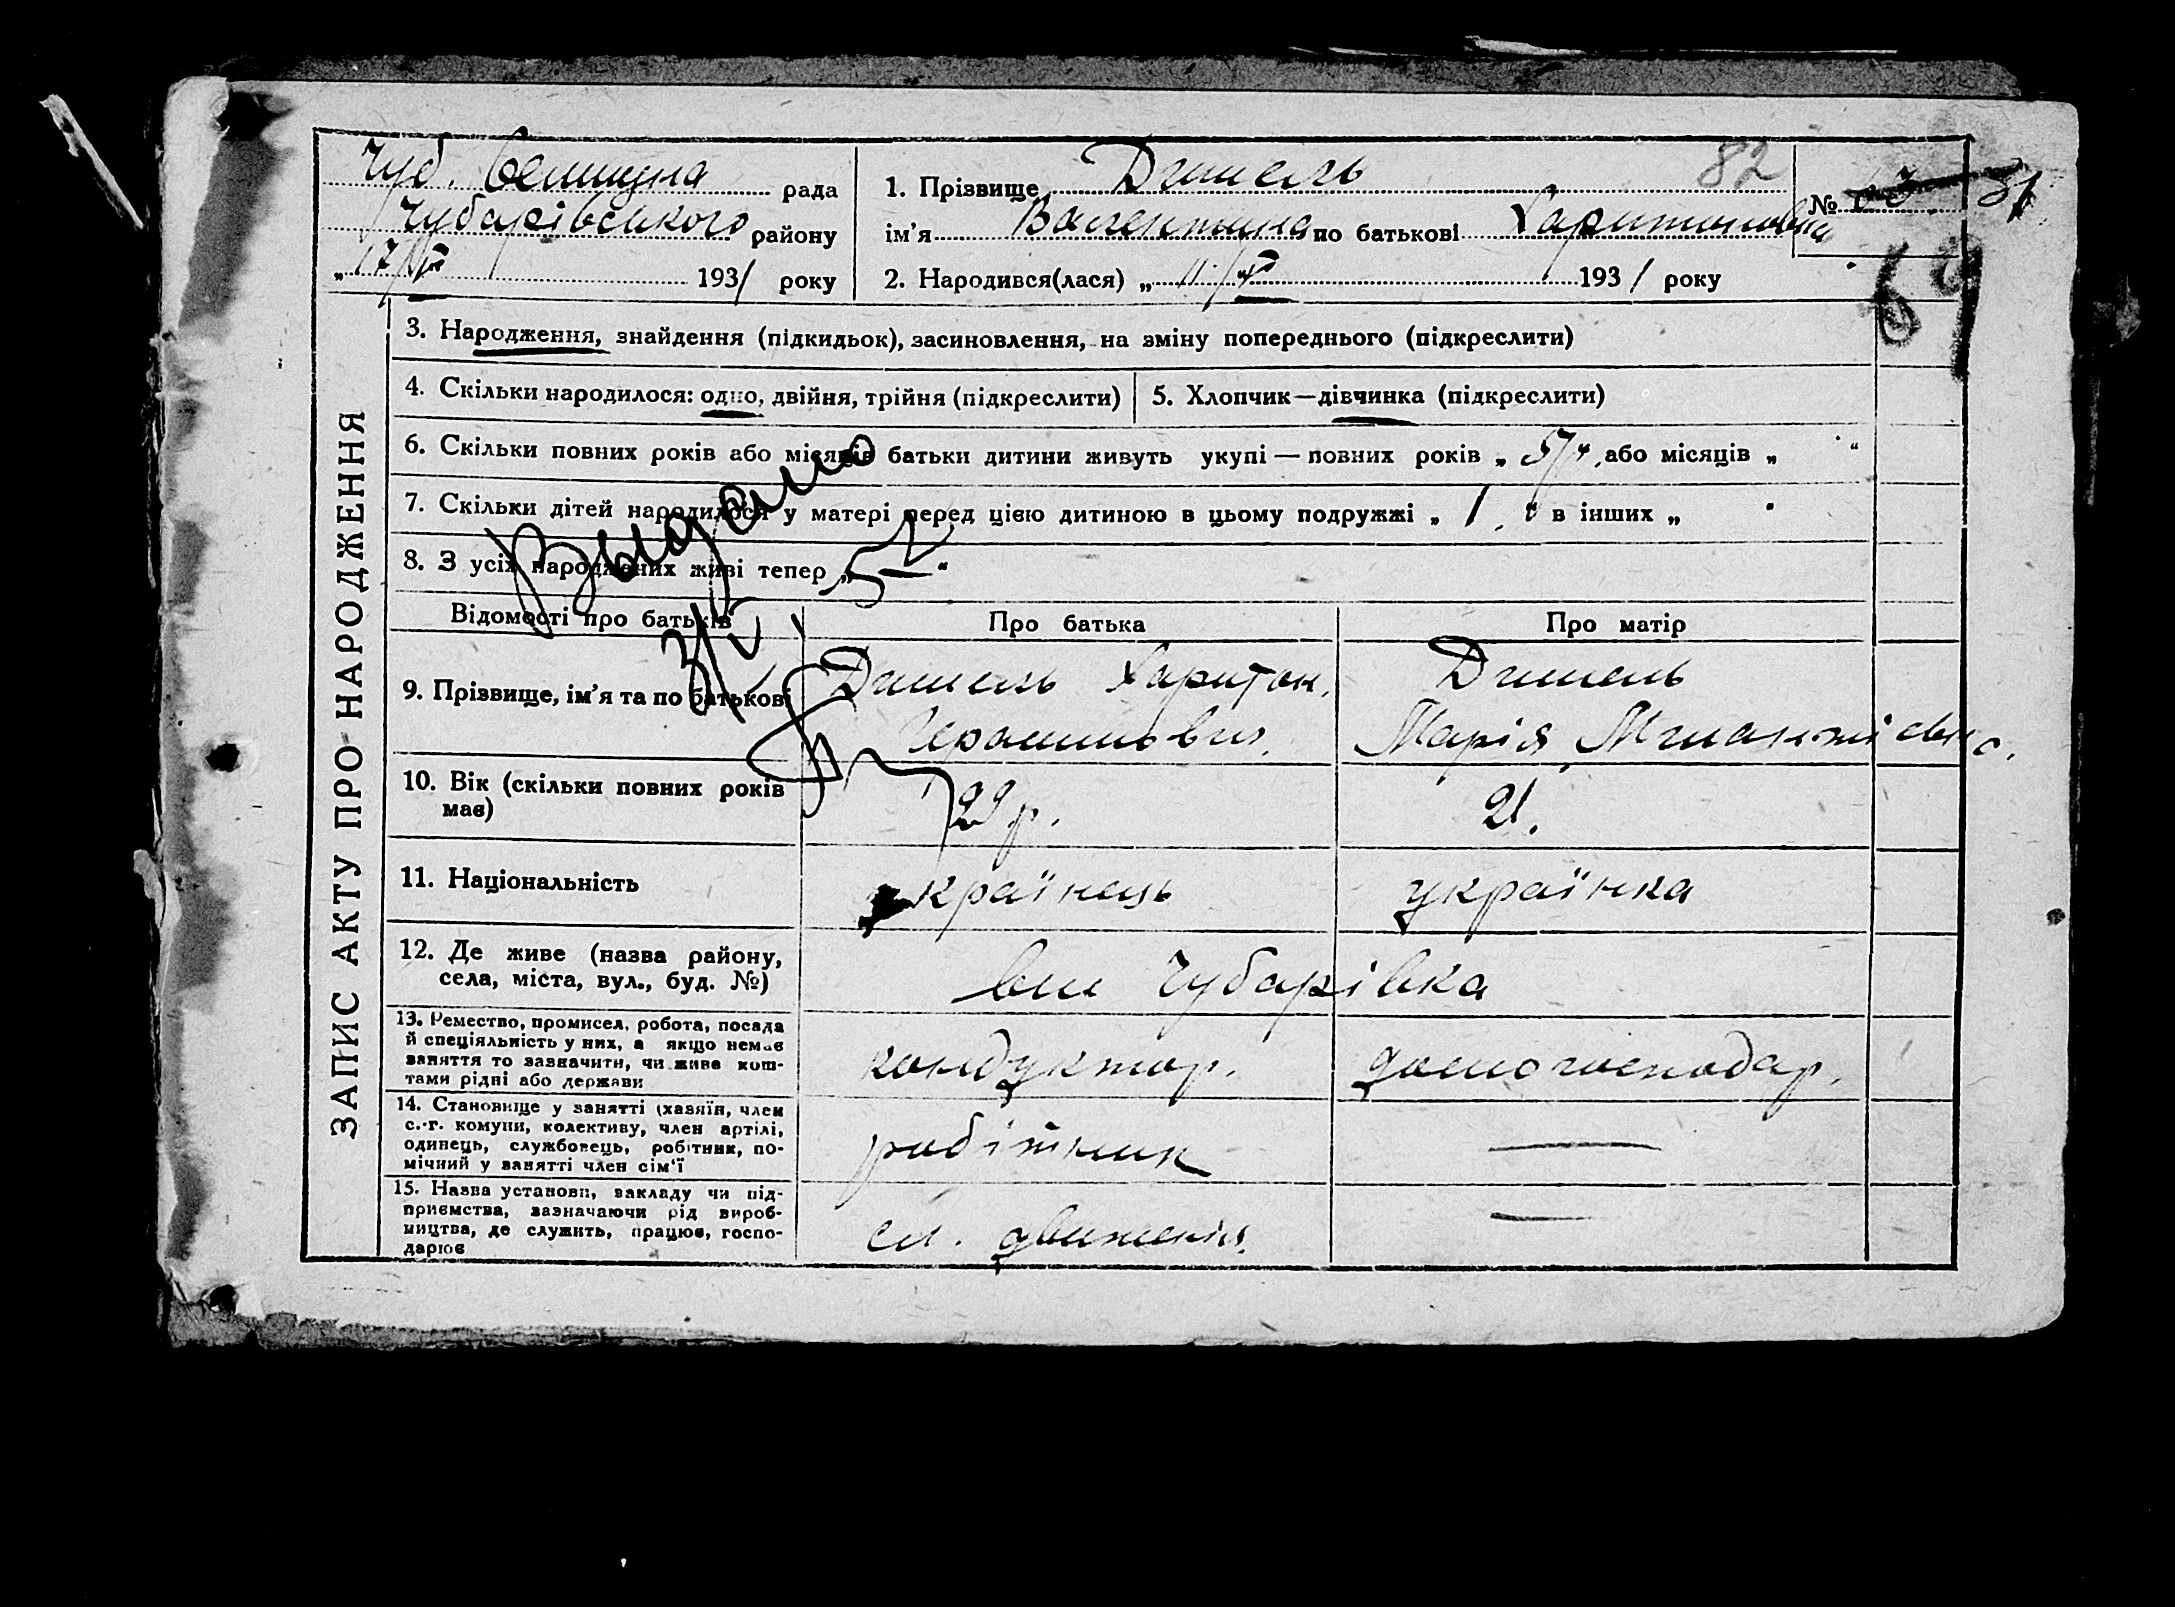 Чуб. Селищна рада
Чубарівського району
„ 17/ 1931 року
1. Прізвище Дишель
82
ім'я Валентина по батькові Харитоновна
№
2. Народився(лася) „ 11/ 1931 року
ЗАПИС АКТУ ПРО НАРОДЖЕННЯ
3. Народження, знайдення (підкидьок), засиновлення, на зміну попереднього (підкреслити)
4. Скільки народилося: одно, двійня, трійня (підкреслити)
5. Хлопчик—дівчинка (підкреслити)
6. Скільки повних років або місяців батьки дитини живуть укупі — повних років „ , або місяців „ “
7. Скільки дітей народилося у матері перед цією дитиною в цьому подружжі „ 1 “ в інших „ “
8. З усіх народжених живі тепер „ “
Выдано
Відомості про батьків
Про батька
Про матір
9. Прізвище, ім'я та по батькові
Дишель Харитон
Дишель
Марія
10. Вік (скільки повних років
має)
22 р.
21.
11. Національність
українець
українка
12. Де живе (назва району,
села, міста, вул., буд. №)
Чубарівка
13. Ремество, промисел, робота, посада
й спеціяльність у них, а якщо немає
заняття то зазначити, чи живе кош-
тами рідні або держави
кондуктор.
домогосподар.
14. Становище у занятті (хазяїн, член
с.-г. комуни, колективу, член артілі,
одинець, службовець, робітник, по-
мічний у занятті член сім'ї
робітник
15. Назва установи, закладу чи під-
приємства, зазначаючи рід вироб-
ництва, де служить, працює, госпо-
дарює
сл. движения.